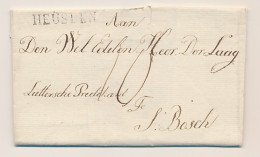 HEUSDEN
Aan
Den Wel Edelen Heer Den Laing
Luttersche Predikant
Te
S. Bosch